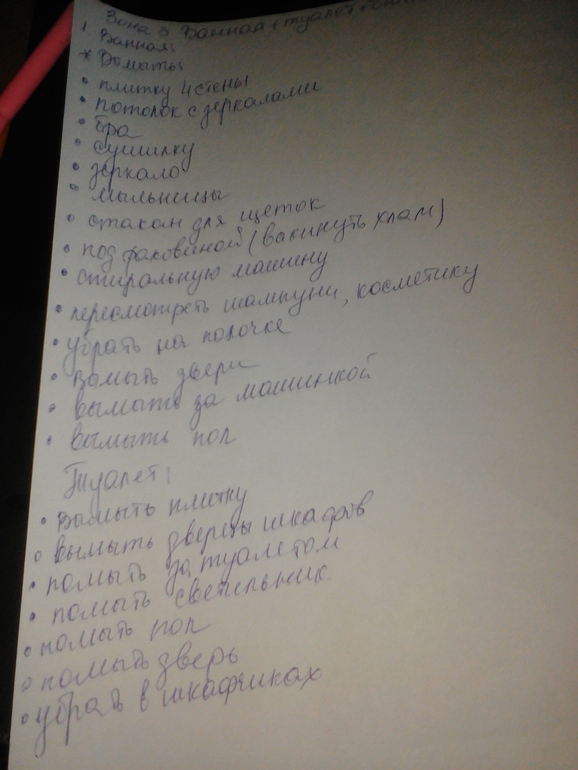 Зона 3 Ванная + туалет +
Ванная:
* Вымыть:
• плитку 4 стены
• потолок с зеркалами
• бра
• сушилку
• зеркало
• мыльницы
• стакан для щеток
• под раковиной (вакинуть хлам)
• стиральную машину
• пересмотреть шампуни, косметику
• убрать на полочке
• Вымыть двери
• вымыть за машинкой
• вымыть пол
Туалет:
• Вымыть плитку
• вымыть дверцы шкафов
• помыть за туалетом
• помыть светильник
• помыть пол
• помыть дверь
• убрать в шкафчиках